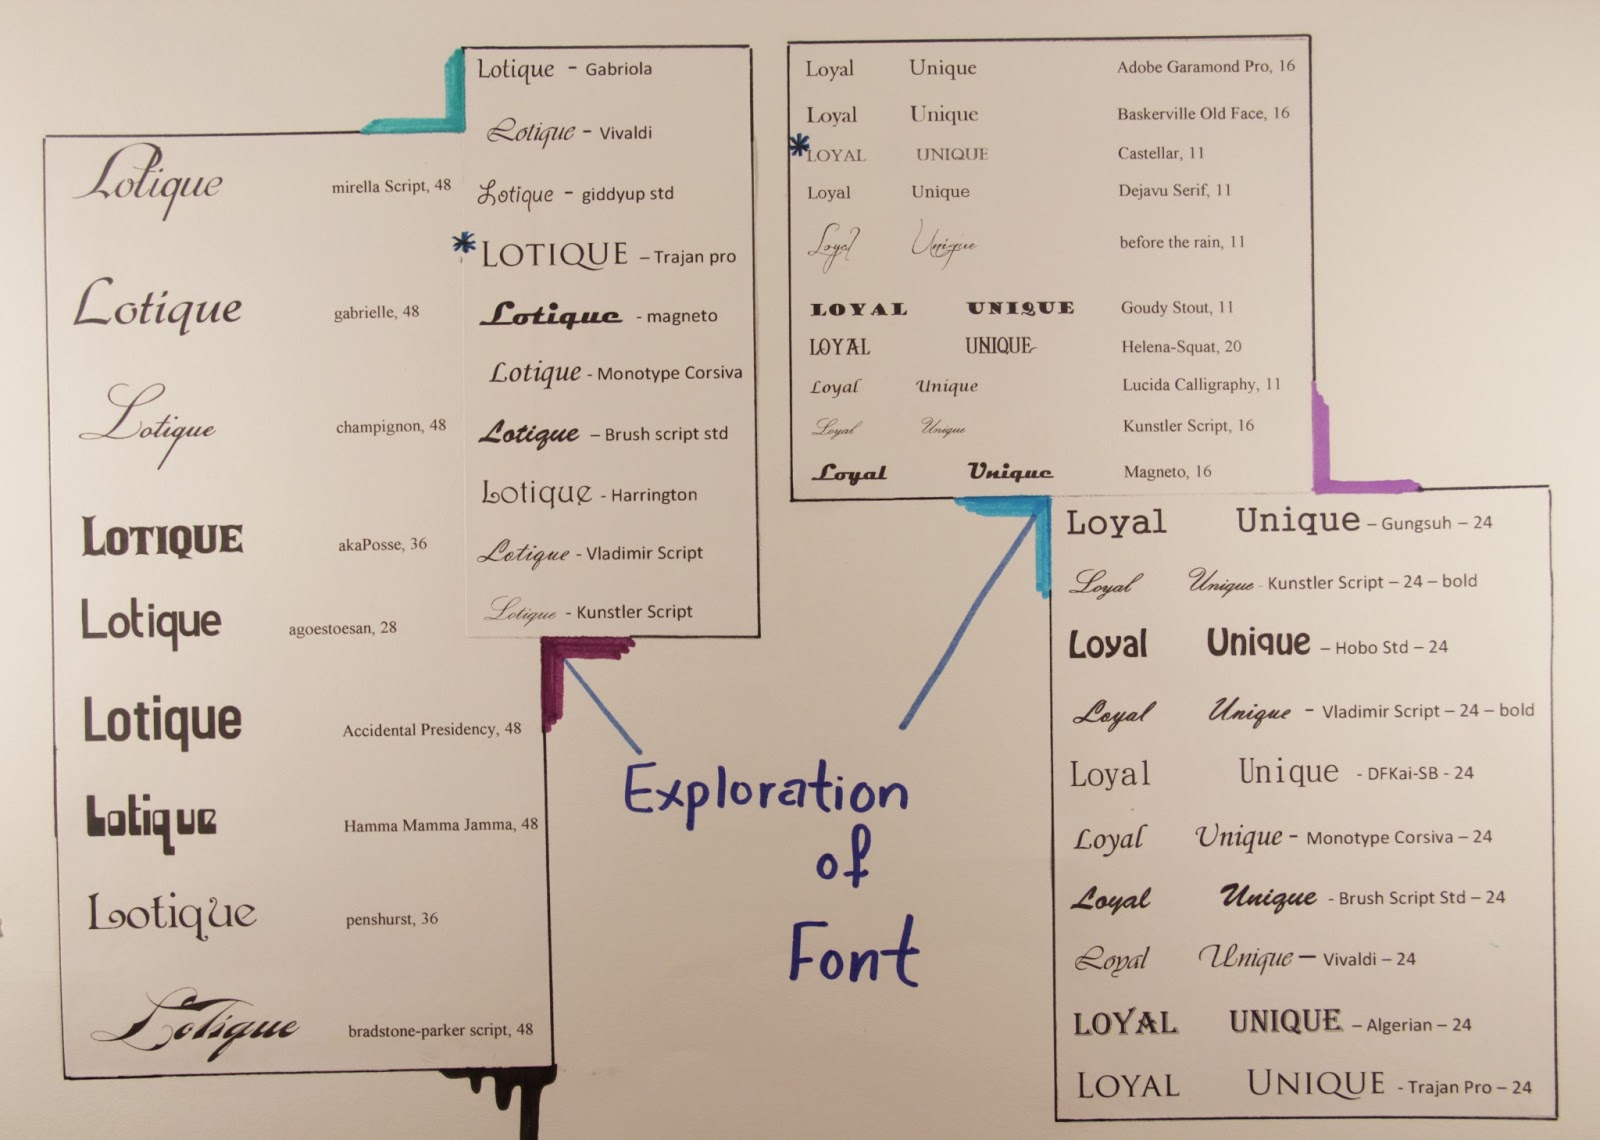 Lotique mirella Script, 48
Lotique gabrielle, 48
Lotique champignon, 48
LOTIQUE akaPosse, 36
Lotique agoestoesan, 28
Lotique Accidental Presidency, 48
Lotique Hamma Mamma Jamma, 48
Lotique penshurst, 36
Lotique bradstone-parker script, 48
Lotique - Gabriola
Lotique - Vivaldi
Lotique - giddyup std
* LOTIQUE – Trajan pro
Lotique - magneto
Lotique - Monotype Corsiva
Lotique – Brush script std
Lotique - Harrington
Lotique - Vladimir Script
Lotique - Kunstler Script
Loyal Unique Adobe Garamond Pro, 16
Loyal Unique Baskerville Old Face, 16
* LOYAL UNIQUE Castellar, 11
Loyal Unique Dejavu Serif, 11
Loyal Unique before the rain, 11
LOYAL UNIQUE Goudy Stout, 11
LOYAL UNIQUE Helena-Squat, 20
Loyal Unique Lucida Calligraphy, 11
Loyal Unique Kunstler Script, 16
Loyal Unique Magneto, 16
Loyal Unique – Gungsuh – 24
Loyal Unique - Kunstler Script – 24 – bold
Loyal Unique – Hobo Std – 24
Loyal Unique - Vladimir Script – 24 – bold
Loyal Unique - DFKai-SB - 24
Loyal Unique - Monotype Corsiva – 24
Loyal Unique - Brush Script Std – 24
Loyal Unique – Vivaldi – 24
LOYAL UNIQUE – Algerian – 24
LOYAL UNIQUE - Trajan Pro – 24
Exploration
of
Font